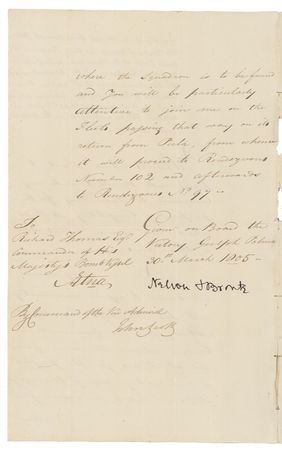 where the Squadron is to be found
and You will be particularly
attentive to join me or the
Fleet passing that way on its
return from Pula, from whence
it will proceed to Rendezvous
Number 102 and afterwards
to Rendezvous No. 97 -
To
Richard Thomas Esqr
Commander of His
Majesty's Bomb Vessel
Ætna
Given on Board the
Victory Gulph Palma
30th March 1805 -
Nelson & Bronte
By Command of the Vice Admiral
John Scott